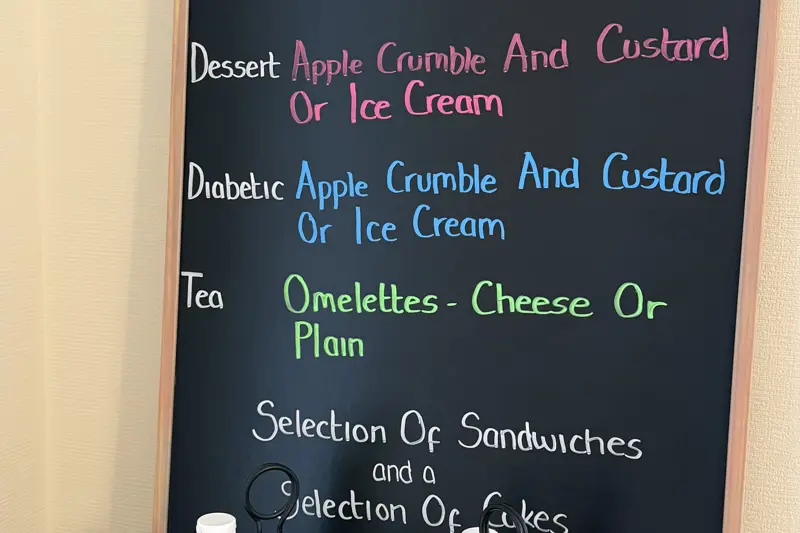 Dessert Apple Crumble And Custard
Or Ice Cream
Diabetic Apple Crumble And Custard
Or Ice Cream
Tea Omelettes - Cheese Or
Plain
Selection Of Sandwiches
and a
Selection Of Cakes